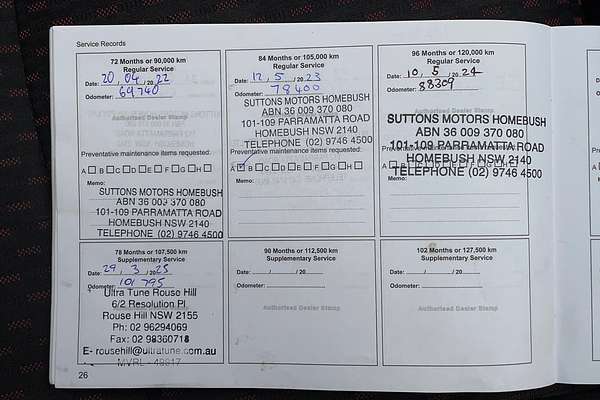 Service Records
72 Months or 90,000 km
Regular Service
Date: 20 / 04 / 2022
Odometer: 69740
Authorised Dealer Stamp
Preventative maintenance items requested:
A B C D E F G H
Memo:
SUTTONS MOTORS HOMEBUSH
ABN 36 009 370 080
101-109 PARRAMATTA ROAD
HOMEBUSH NSW 2140
TELEPHONE (02) 9746 4500
84 Months or 105,000 km
Regular Service
Date: 12 / 5 / 2023
Odometer: 78400
SUTTONS MOTORS HOMEBUSH
ABN 36 009 370 080
101-109 PARRAMATTA ROAD
HOMEBUSH NSW 2140
TELEPHONE (02) 9746 4500
Preventative maintenance items requested:
A B C D E F G H
Memo:
96 Months or 120,000 km
Regular Service
Date: 10 / 5 / 2024
Odometer: 88309
SUTTONS MOTORS HOMEBUSH
ABN 36 009 370 080
101-109 PARRAMATTA ROAD
HOMEBUSH NSW 2140
TELEPHONE (02) 9746 4500
Memo:
78 Months or 107,500 km
Supplementary Service
Date: 29 / 3 / 2025
Odometer: 101795
Ultra Tune Rouse Hill
6/2 Resolution Pl
Rouse Hill NSW 2155
Ph: 02 96294069
Fax: 02 98360718
E- rousehill@ultratune.com.au
MVRL - 49917
90 Months or 112,500 km
Supplementary Service
Date: / / 20
Odometer:
Authorised Dealer Stamp
102 Months or 127,500 km
Supplementary Service
Date: / / 20
Odometer:
Authorised Dealer Stamp
26